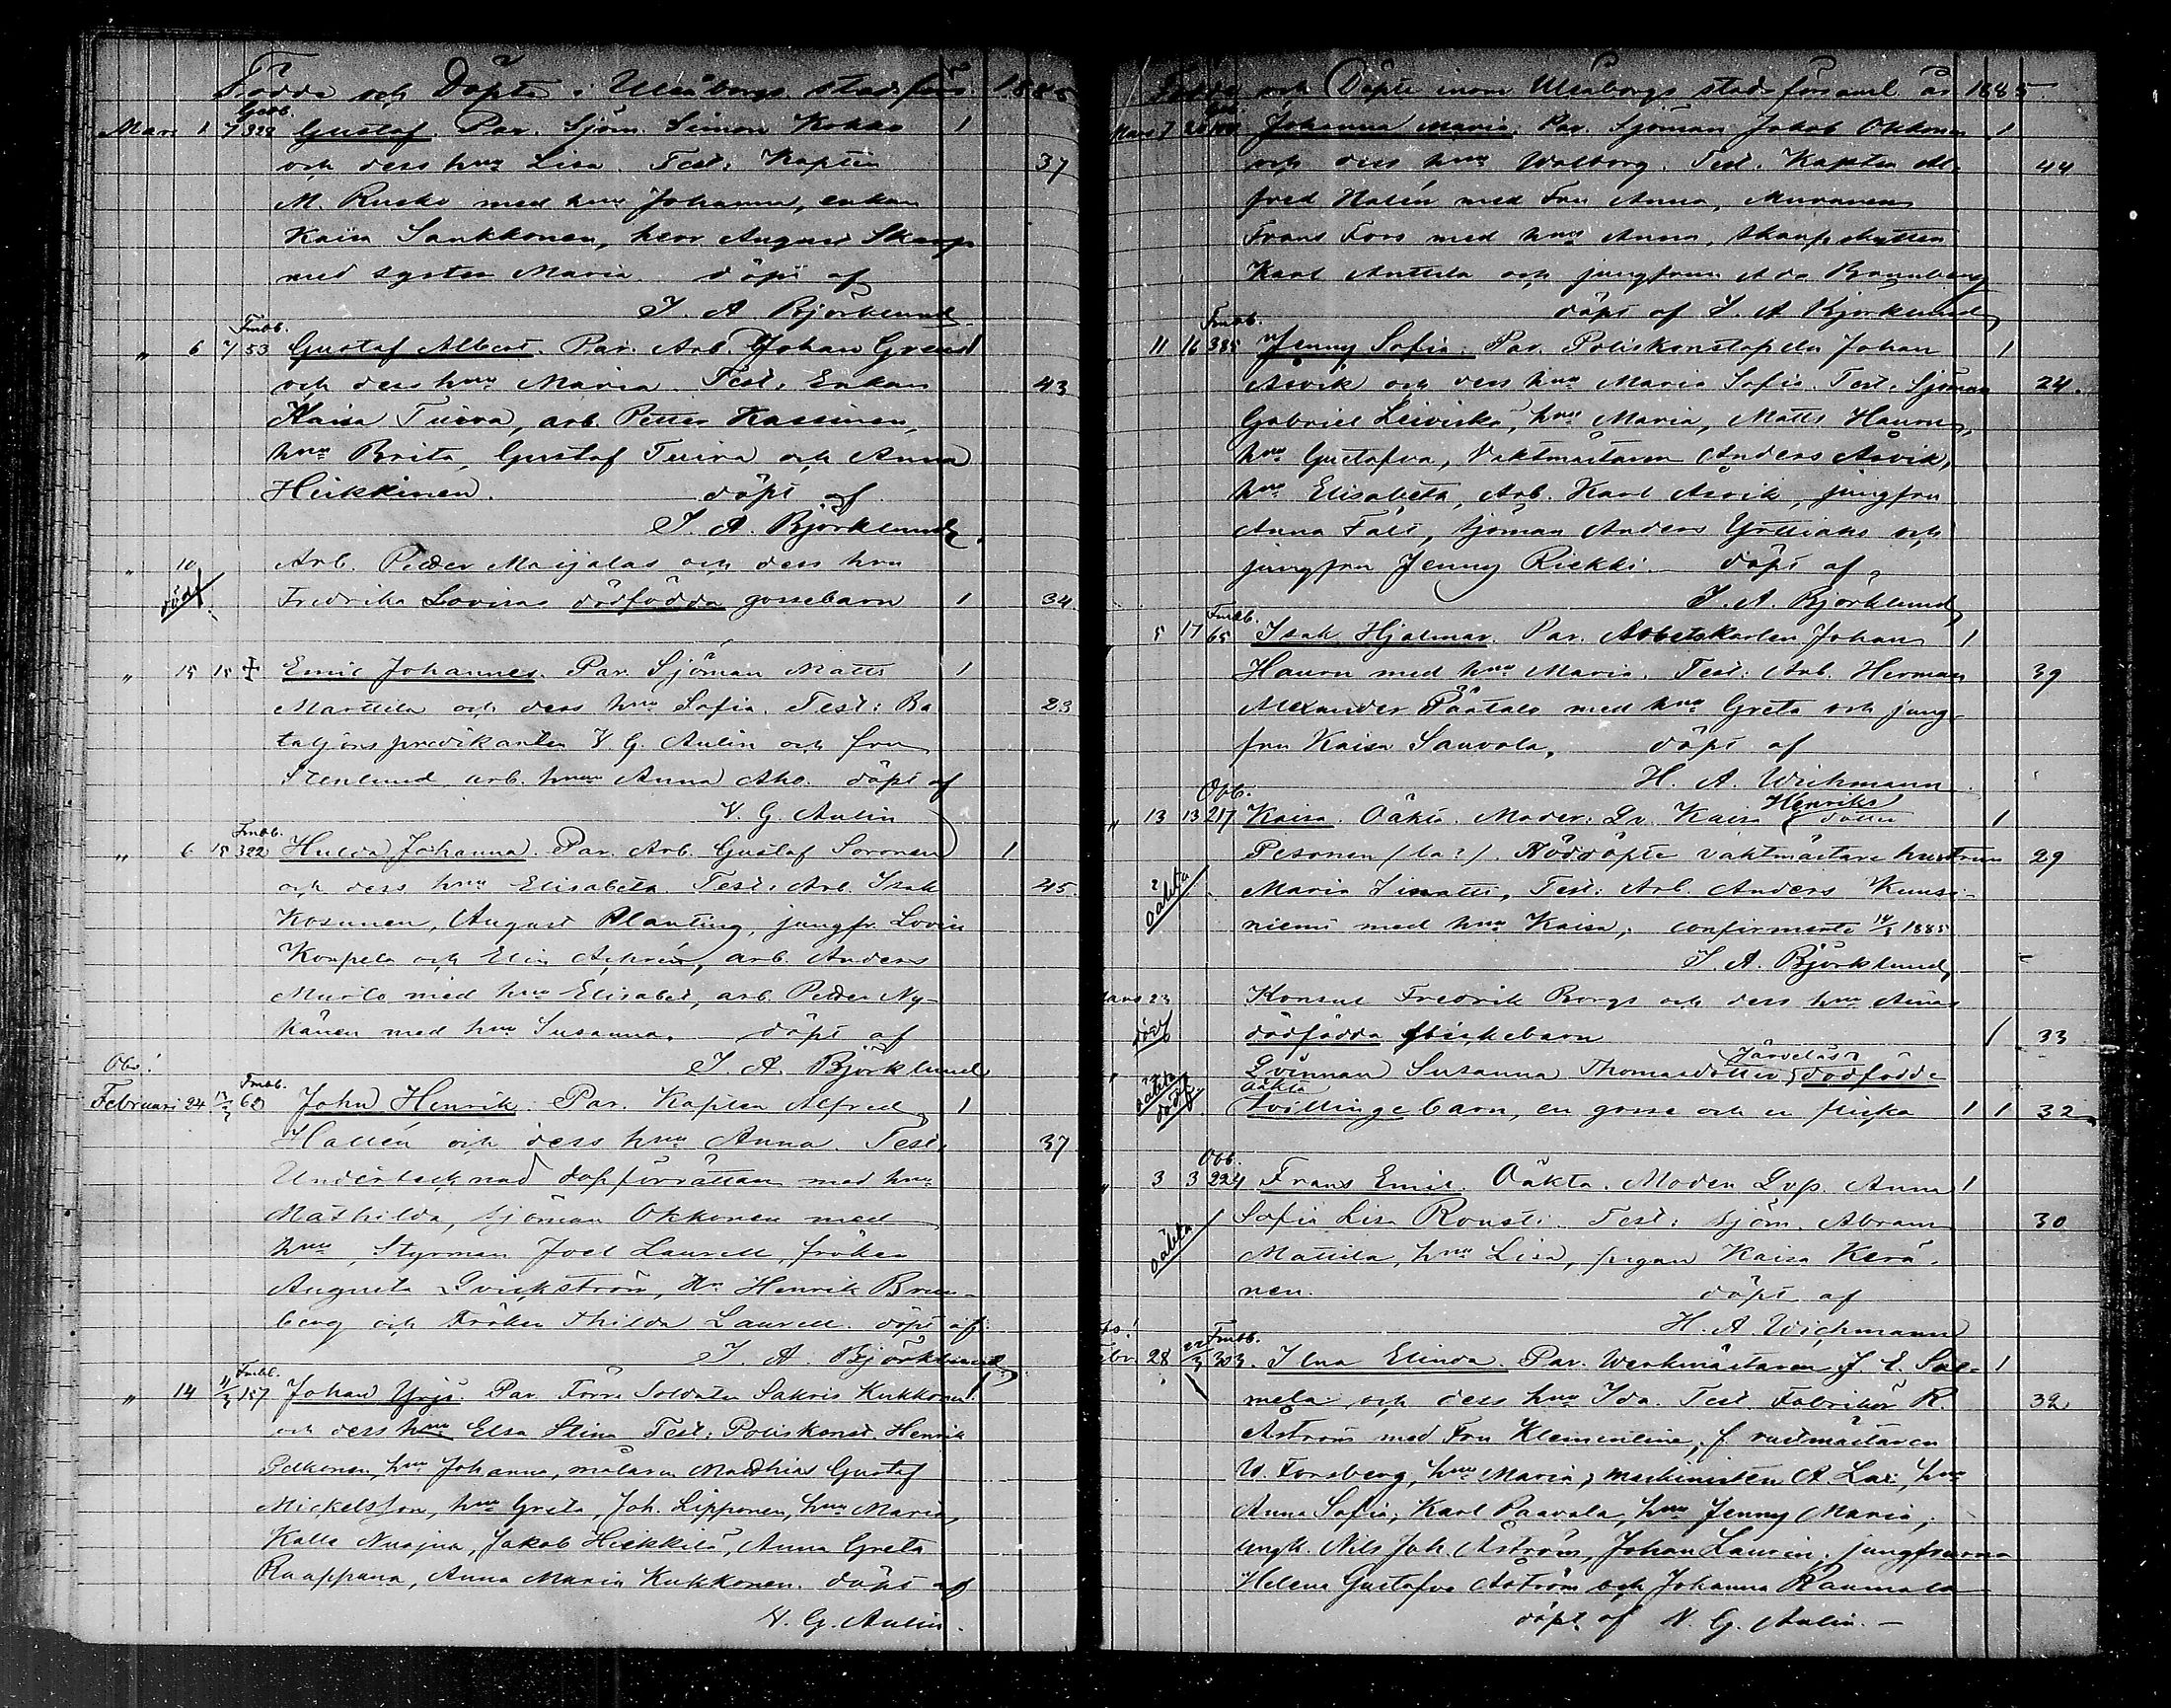 Födde och Döpte i Uleåborgs stadsförs. 1885
Gatb.
Mars 1 7 328 Gustaf. Par. Sjöm. Simon Kokko 1
och dess hru Lisa. Test: Kapten 37
M. Rusko med hru Johanna, enkan
Kaisa Sankkonen, herr August Skarp
med syster Maria. döpt af
J. A. Björklund
Fmbb.
" 6 7 53 Gustaf Albert. Par. Arb. Johan Grend 1
och dess hru Maria. Test. Enkan 43
Kaisa Tuira, arb. Petter Kassinen,
hru Brita, Gustaf Tuira och Anna
Heikkinen. döpt af
J. A. Björklund
" 10 Arb. Peder Maijalas och dess hru
dödf. Fredrika Lovisas dödfödda gossebarn 1 34
" 15 15 + Emil Johannes. Par. Sjöman Matts 1
Marttila och dess hru Sofia. Test: Ba 23
taljonspredikanten V. G. Aulin och fru
Stenlund arb. hrun Anna Aho. döpt af
V. G. Aulin
Fmbb.
" 6 15 322 Hulda Johanna. Par. Arb. Gustaf Soronen 1
och dess hru Elisabeta. Test: Arb. Isak 45
Kosunen, August Planting, jungfr. Lovisa
Konpela och Elin Achrén, arb. Anders
Murto med hru Elisabet, arb. Peder Ny-
känen med hru Susanna. döpt af
Obs! J. A. Björklund
Fmbb.
Februari 24 60 John Henrik. Par. Kapten Alfred 1
Hallén och dess hru Anna. Test. 37
Undertecknad dopförrättare med hru
Mathilda, sjöman Okkonen med
hru, Styrman Joel Laurell, fröken
Augusta Qvickström, Hr Henrik Brun-
berg och Fröken Thilda Laurell. döpt af
J. A. Björklund
Fmbb.
" 14 11/3 157 Johan Yrjö. Par. Förre Soldaten Sakris Kukkonen 1
och dess hru Elsa Stina Test: Poliskonst. Henrik
Pelkonen, hru Johanna, målaren Matthias Gustaf
Mickelsson, hru Greta, Joh. Lipponen, hru Maria,
Kalle Nuojua, Jakob Heikkilä, Anna Greta
Raappana, Anna Maria Kukkonen. döpt af
V. G. Aulin.
Födde och Döpte inom Uleåborgs stadsförsaml år 1885.
Mars 7 Johanna Maria. Par. Sjöman Jakob Okkonen 1
och dess hru Walborg. Test. Kapten Al- 44
fred Halén med Fru Anna, Muraren
Frans Fors med hru Anna,
Karl Anttila och jungfrun Ada Brunberg
döpt af J. A. Björklund
Fmbb.
11 16 385 Jenny Sofia. Par. Poliskonstapeln Johan 1
Asvik och dess hru Maria Sofia. Test. Sjöman 24.
Gabriel Leiviskä, hru Maria, Matts Hauru,
hru Gustafva, Vaktmästaren Anders Asvik,
hru Elisabeta, Arb. Karl Asvik, jungfru
Anna Fält, sjöman Anders Ypttiaho och
jungfru Jenny Riekki. döpt af
J. A. Björklund
Fmbb.
5 17 65 Isak Hjalmar. Par. Arbetskarlen Johan 1
Hauru med hru Maria. Test: Arb. Herman 39
Alexander Paatalo med hru Greta och jung-
fru Kaisa Sauvola. döpt af
H. A. Wichmann
Obb. Henriks
" 13 13 217 Kaisa. Oäkta. Moder: Qv. Kaisa dotter 1
Pesonen (la?). Nöddöpte vaktmästare hustrun 29
oäkta Maria Test: Arb. Anders Kuusi-
niemi med hru Kaisa, confirmerte 14/3 1885
J. A. Björklund
Mars 23 Konsul Fredrik Borgs och dess hru Annas
dödf dödfödda flickebarn 1 33
Järveläs
" Qvinnan Susanna Thomasdotter dödfödde
oäkta dödf oäkta tvillingebarn, en gosse och en flicka 1 1 32
Obb.
" 3 3 224 Frans Emil. Oäkta. Moder Qvp. Anna 1
Sofia Lisa Rousti. Test: sjöm. Abram 30
oäkta Mattila, hru Lisa, pigan Kaisa Kerä-
nen. döpt af
H. A. Wichmann
Fmbb.
Febr. 28 22/3 303. Ilna Elinda. Par. Werkmästaren J. E. Sal- 1
mela och dess hru Ida. Test Fabrikör R. 32
Åström med Fru Klementine, f. rustmästaren
W. Forsberg, hru Maria, maskinisten A. Lax: hru
Anna Sofia, Karl Paavola, hru Jenny Maria,
ungk. Nils Joh Åström, Johan Laurin. jungfruarna
Helena Gustafva Åström och Johanna Raumala
döpt af V. G. Aulin. —